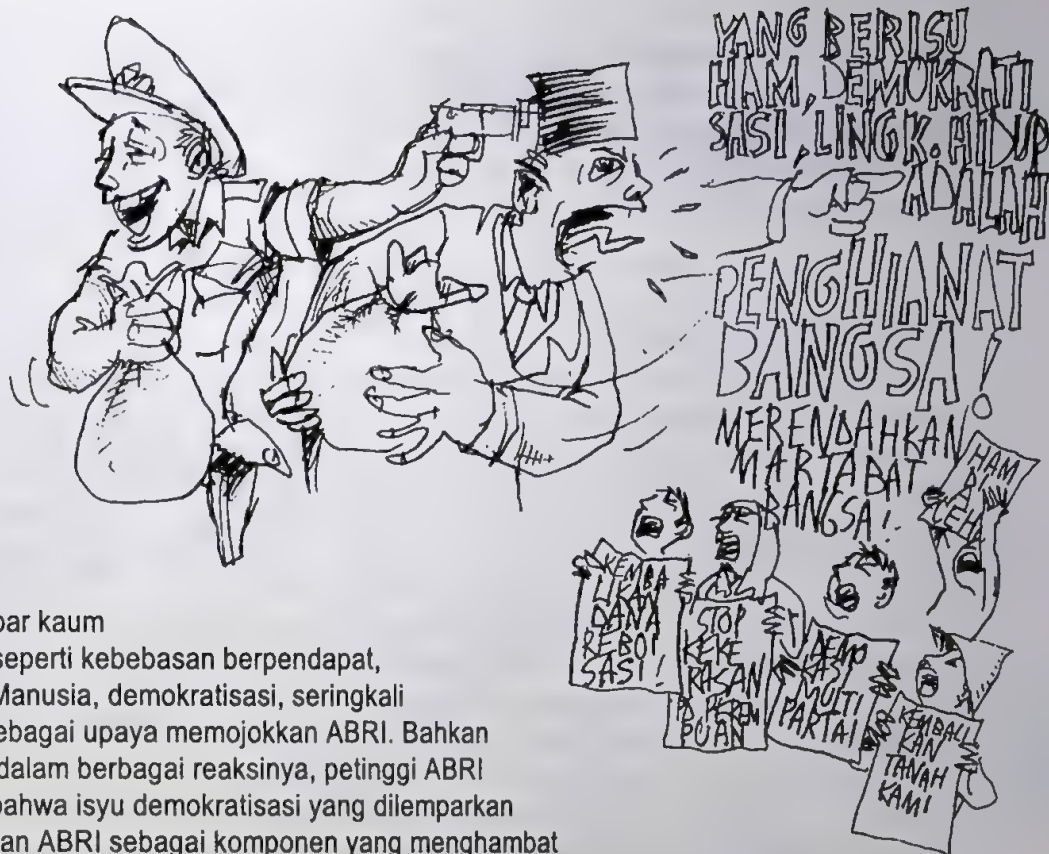 YANG BERISU
HAM, DEMOKRATI
SASI, LINGK. HIDUP
ADALAH
PENGHIANAT
BANGSA!
MERENDAHKAN
MARTABAT
BANGSA!
HAM
KEMBA
LIKAN
DANA
REBOI
SASI!
STOP
KEKE
RASAN
PEREM
PUAN
DEMO
KASI
MULTI
PARTAI
KEMBALI
KAN
TANAH
KAMI
bar kaum
seperti kebebasan berpendapat,
Manusia, demokratisasi, seringkali
ebagai upaya memojokkan ABRI. Bahkan
dalam berbagai reaksinya, petinggi ABRI
bahwa isyu demokratisasi yang dilemparkan
an ABRI sebagai komponen yang menghambat